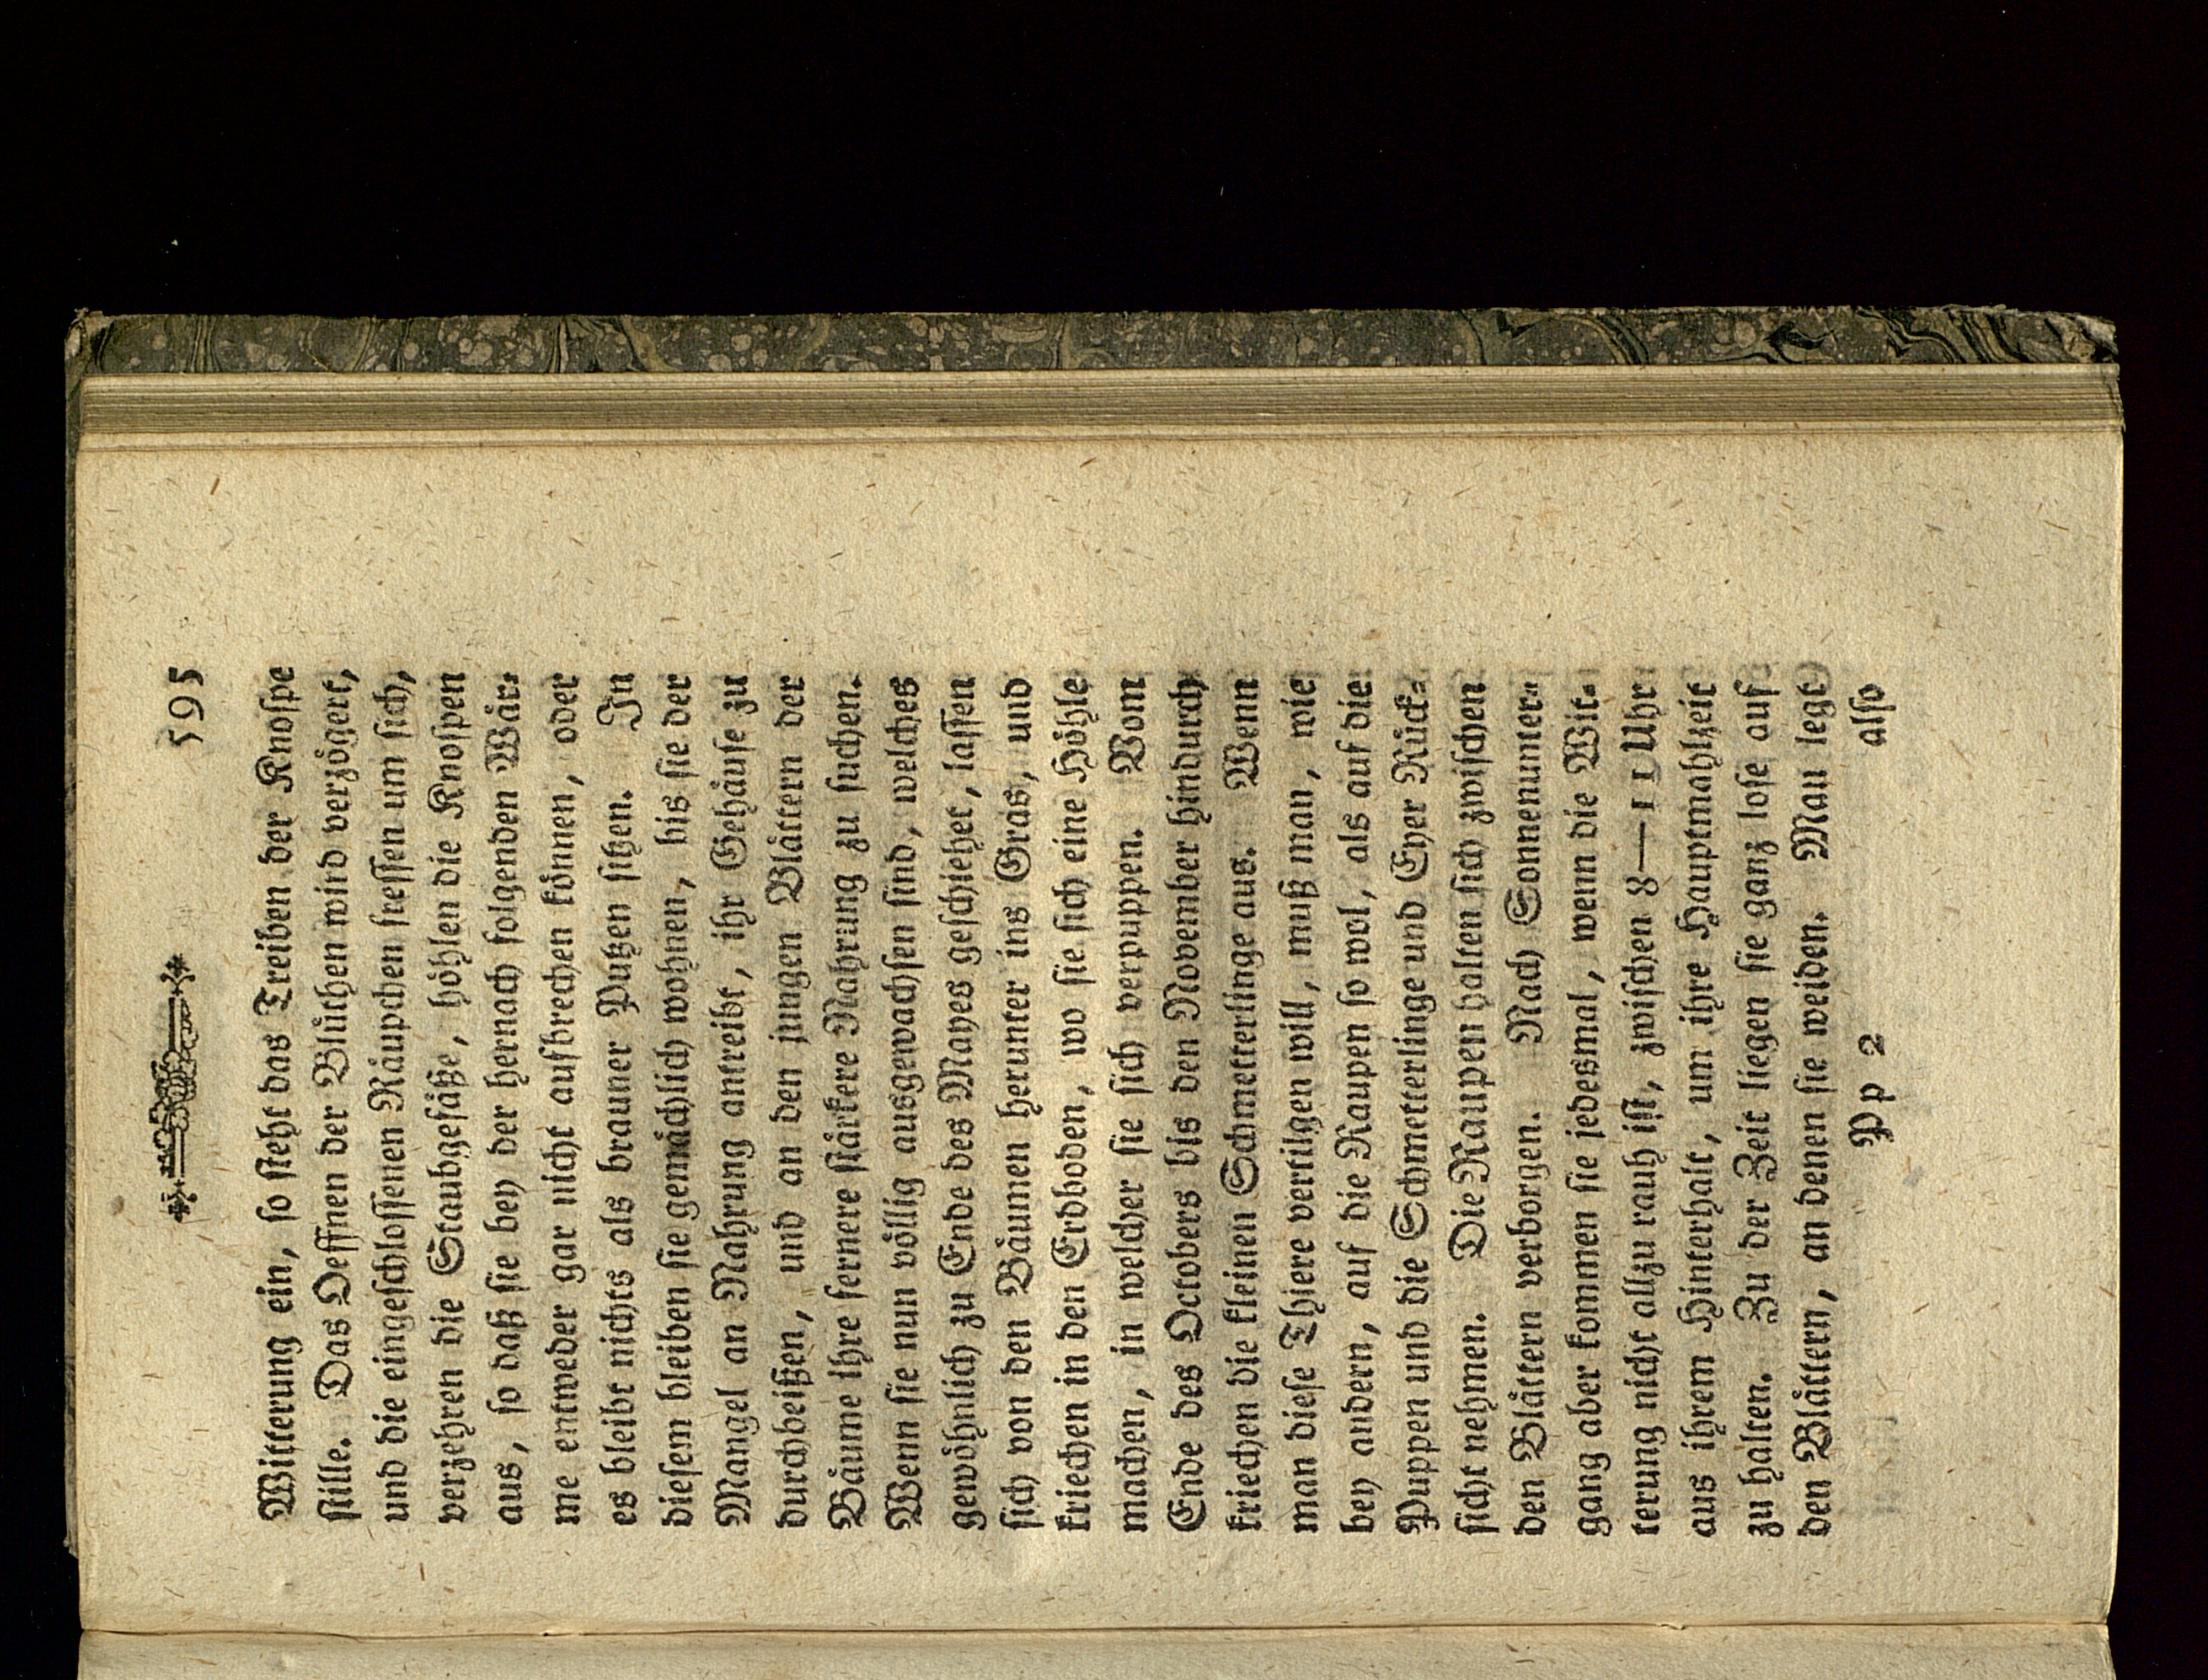 595
Witterung ein, so steht das Treiben der Knospe
stille. Das Oeffnen der Blüthen wird verzögert,
und die eingeschlossenen Räupchen fressen um sich,
verzehren die Staubgefäße, höhlen die Knospen
aus, so daß sie bey der hernach folgenden Wär-
me entweder gar nicht aufbrechen können, oder
es bleibt nichts als brauner Putzen sitzen. In
diesem bleiben sie gemächlich wohnen, bis sie der
Mangel an Nahrung antreibt, ihr Gehäuse zu
durchbeißen, und an den jungen Blättern der
Bäume ihre fernere stärkere Nahrung zu suchen.
Wenn sie nun völlig ausgewachsen sind, welches
gewöhnlich zu Ende des Mayes geschiehet, lassen
sich von den Bäumen herunter ins Gras, und
kriechen in den Erdboden, wo sie sich eine Höhle
machen, in welcher sie sich verpuppen. Vom
Ende des Octobers bis den November hindurch
kriechen die kleinen Schmetterlinge aus. Wenn
man diese Thiere vertilgen will, muß man, wie
bey andern, auf die Raupen so wol, als auf die
Puppen und die Schmetterlinge und Eyer Rück-
sicht nehmen. Die Raupen halten sich zwischen
den Blättern verborgen. Nach Sonnenunter-
gang aber kommen sie jedesmal, wenn die Wit-
terung nicht allzu rauh ist, zwischen 8—11 Uhr
aus ihrem Hinterhalt, um ihre Hauptmahlzeit
zu halten. Zu der Zeit liegen sie ganz lose auf
den Blättern, an denen sie weiden. Man legt
Pp 2 also